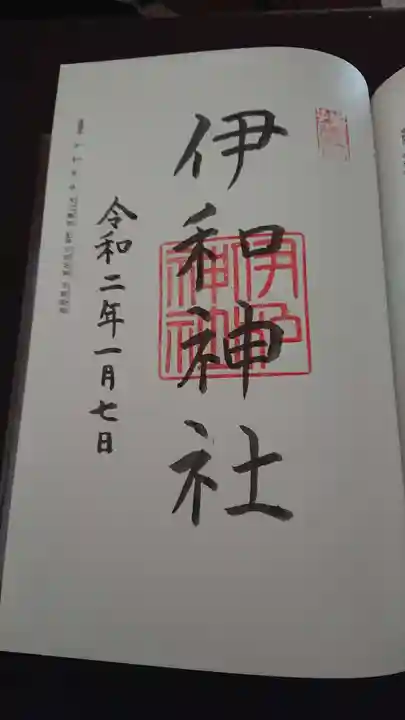 伊和神社
伊和
神社
令和二年一月七日